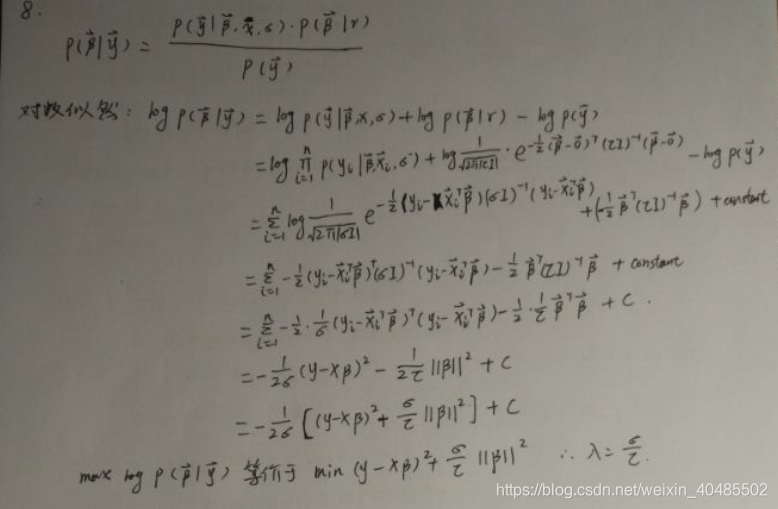 8.
P(β⃗|y⃗) = P(y⃗|β⃗,x⃗,σ)·P(β⃗|r) / P(y⃗)
对数似然: log P(β⃗|y⃗) = log P(y⃗|β⃗,x,σ) + log P(β⃗|r) - log P(y⃗)
= log ∏_{i=1}^{n} P(y_i|β⃗,x⃗_i,σ) + log 1/√(2π|τI|) · e^{-1/2(β⃗-0⃗)^T(τI)^{-1}(β⃗-0⃗)} - log P(y⃗)
= Σ_{i=1}^{n} log 1/√(2π|σI|) e^{-1/2(y_i-x⃗_i^Tβ⃗)(σI)^{-1}(y_i-x⃗_i^Tβ⃗)} + (-1/2 β⃗^T(τI)^{-1}β⃗) + constant
= Σ_{i=1}^{n} -1/2(y_i-x⃗_i^Tβ⃗)^T(σI)^{-1}(y_i-x⃗_i^Tβ⃗) - 1/2 β⃗^T(τI)^{-1}β⃗ + constant
= Σ_{i=1}^{n} -1/2·1/σ(y_i-x⃗_i^Tβ⃗)^T(y_i-x⃗_i^Tβ⃗) - 1/2·1/τ β⃗^Tβ⃗ + C.
= -1/2σ (y-Xβ)² - 1/2τ ||β||² + C
= -1/2σ [(y-Xβ)² + σ/τ ||β||²] + C
max log P(β⃗|y⃗) 等价于 min (y-Xβ)² + σ/τ ||β||² ∴ λ = σ/τ.
https://blog.csdn.net/weixin_40485502